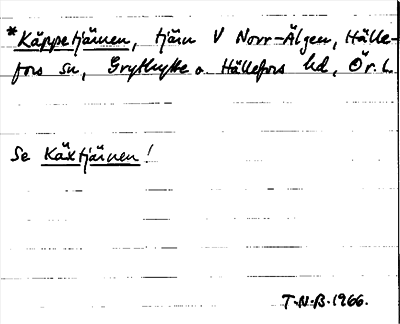 *Käppetjärnen, tjärn V Norr-Älgen, Hälle-
fors sn, Grythytte o Hällefors hd, Ör. l.
Se Käxtjärnen!
T.N.B. 1966.